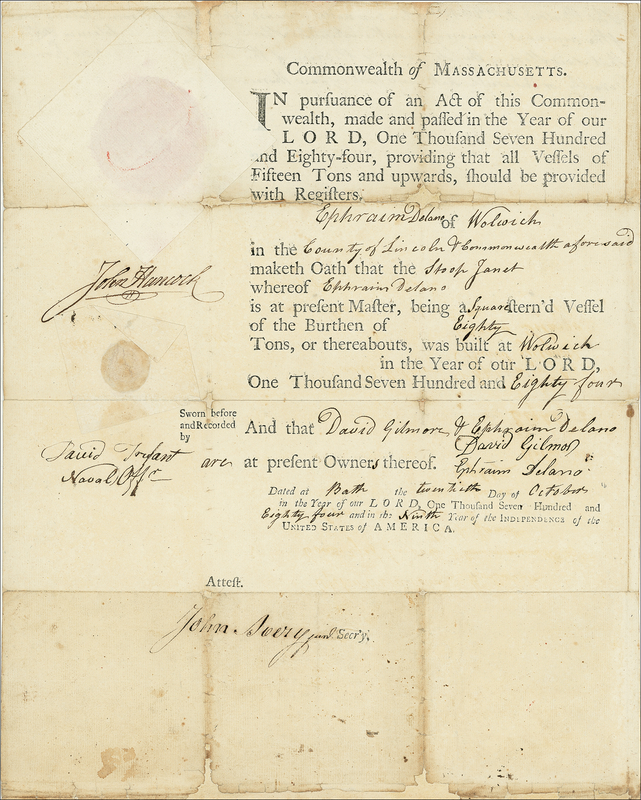 Commonwealth of MASSACHUSETTS.
IN pursuance of an Act of this Common-
wealth, made and paſſed in the Year of our
LORD, One Thouſand Seven Hundred
and Eighty-four, providing that all Veſſels of
Fifteen Tons and upwards, ſhould be provided
with Regiſters.
Ephraim Delano of Wolwich
in the County of Lincoln & Commonwealth aforesaid
maketh Oath that the Sloop Janet
whereof Ephraim Delano
is at present Master, being a Square ſtern'd Veſſel
of the Burthen of Eighty
Tons, or thereabouts, was built at Wolwich
in the Year of our LORD,
One Thouſand Seven Hundred and Eighty four
John Hancock
Sworn before
and Recorded
by
David
Naval Offr
And that David Gilmore & Ephraim Delano
David Gilmor
are at present Owners thereof. Ephraim Delano
Dated at Bath the twentieth Day of October
in the Year of our LORD, One Thouſand Seven Hundred and
Eighty four and in the Ninth Year of the INDEPENDENCE of the
UNITED STATES of AMERICA.
Atteſt.
John Avery junr. Secr'y.